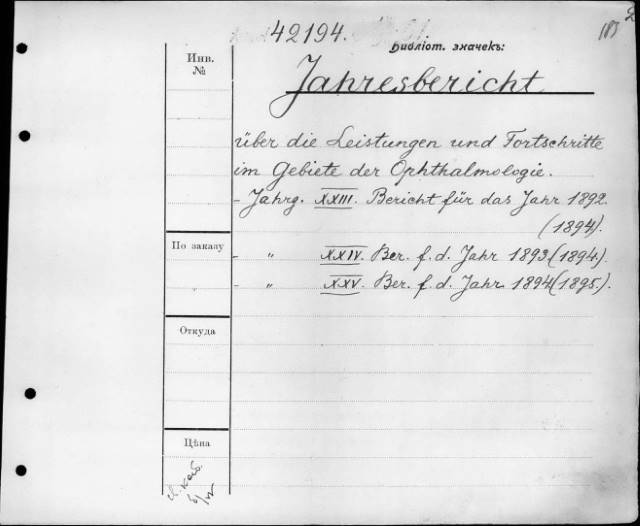 42194.
Библіот. значекъ:
Инв.
№
Jahresbericht
über die Leistungen und Fortschritte
im Gebiete der Ophthalmologie.
- Jahrg. XXIII. Bericht für das Jahr 1892.
(1894).
По заказу
- „ XXIV. Ber. f. d. Jahr 1893 (1894).
- „ XXV. Ber. f. d. Jahr 1894 (1895.).
Откуда
Цѣна